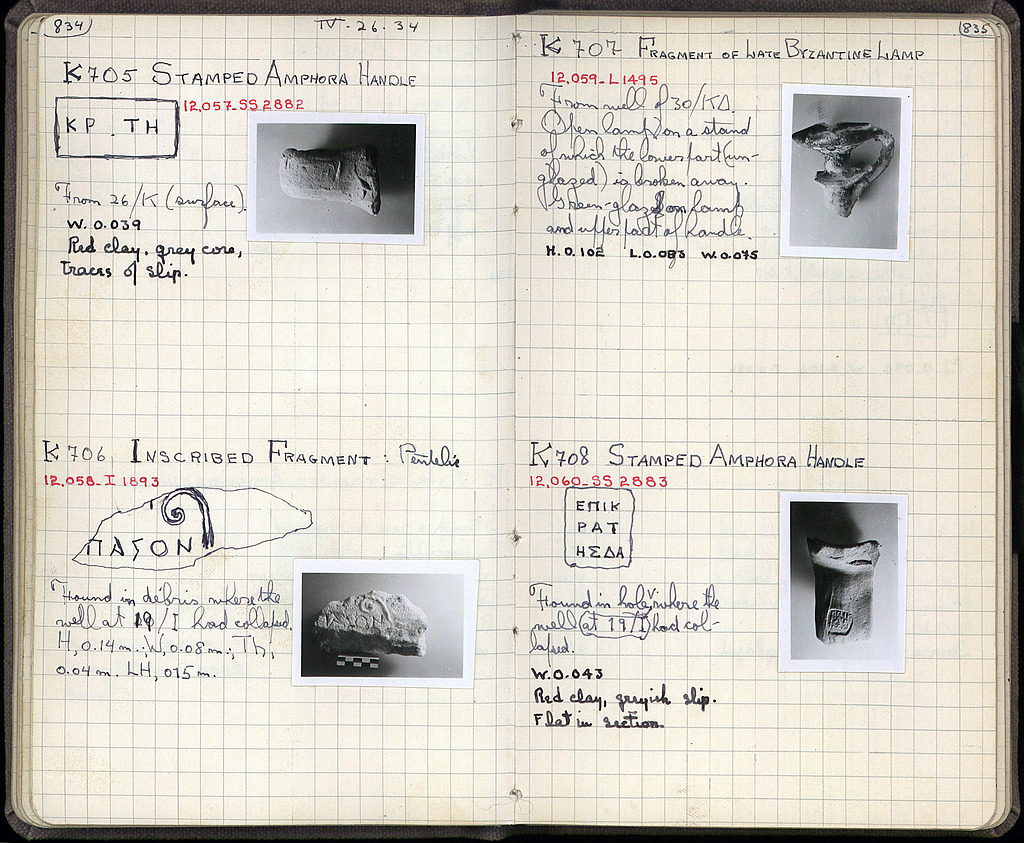 834
IV. 26. 34
K 705 STAMPED AMPHORA HANDLE
12,057-SS 2882
KP . TH
From 26/K (surface).
W. 0.039
Red clay, grey core,
traces of slip.
K 706 INSCRIBED FRAGMENT : Pentelic
12,058-I 1893
ΠΑΣΟΝ
Found in débris where the
well at 19/I had collapsed.
H, 0.14 m.; W, 0.08 m.; Th,
0.04 m. LH, 015 m.
835
K 707 FRAGMENT OF LATE BYZANTINE LAMP
12,059-L 1495
From well of 30/ΚΔ.
Open lamp on a stand
of which the lower part (un-
glazed) is broken away.
Green-glaze on lamp
and upper part of handle.
H. 0.102 L. 0.083 W. 0.075
K 708 STAMPED AMPHORA HANDLE
12,060-SS 2883
ΕΠΙΚ
ΡΑΤ
ΗΣΔΑ
Found in hole, where the
well (at 19/I) had col-
lapsed.
W. 0.043
Red clay, greyish slip.
Flat in section.